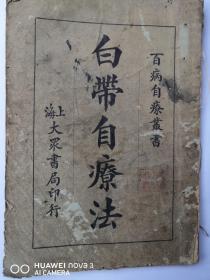 百病自療叢書
白帶自療法
上海大眾書局印行
HUAWEI nova 3
AI CAMERA